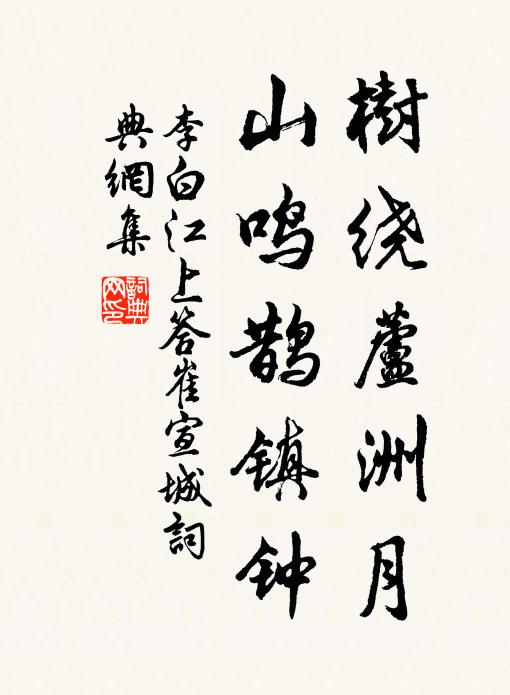 樹绕蘆洲月
山鸣鹊镇钟
李白江上答崔宣城詞
典網集
詞典
网印